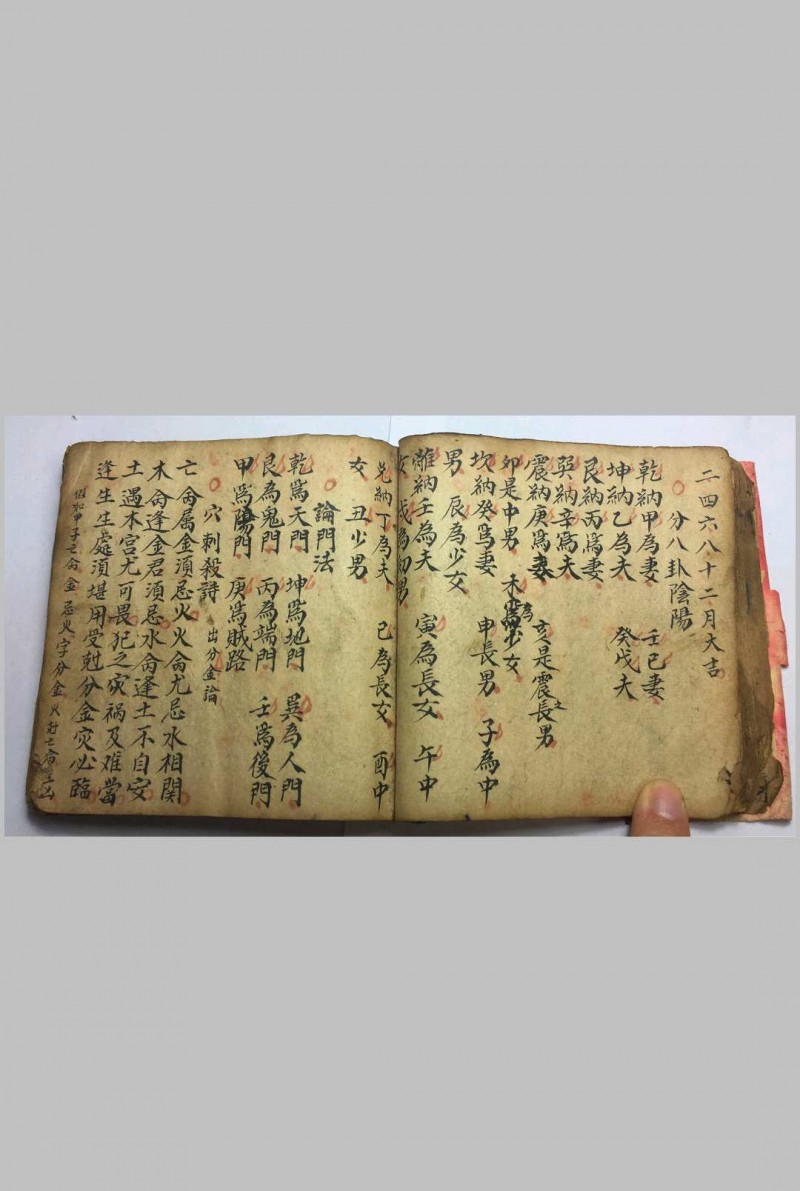 二四六八十二月大吉
分八卦陰陽
乾納甲為妻 壬巳妻
坤納乙為夫 癸戊夫
艮納丙爲妻
巽納辛爲夫
震納庚爲妻 亥是震之長男
卯是中男 未為少女
坎納癸爲妻 申長男 子為中
男 辰為少女
離納壬為夫 寅為長女 午中
女 戌為幼男
兌納丁為夫 巳為長女 酉中
女 丑少男
論門法
乾爲天門 坤爲地門 巽為人門
艮為鬼門 丙為端門 壬爲後門
甲爲陽門 庚爲賊路
穴刺殺詩 出分金論
亡命属金須忌火火命尤忌水相関
木命逢金君須忌水命逢土不自安
土遇木宮尤可畏犯之灾禍及难當
逢生生處須堪用受尅分金灾必臨
假如甲子亡命金忌火字分金火